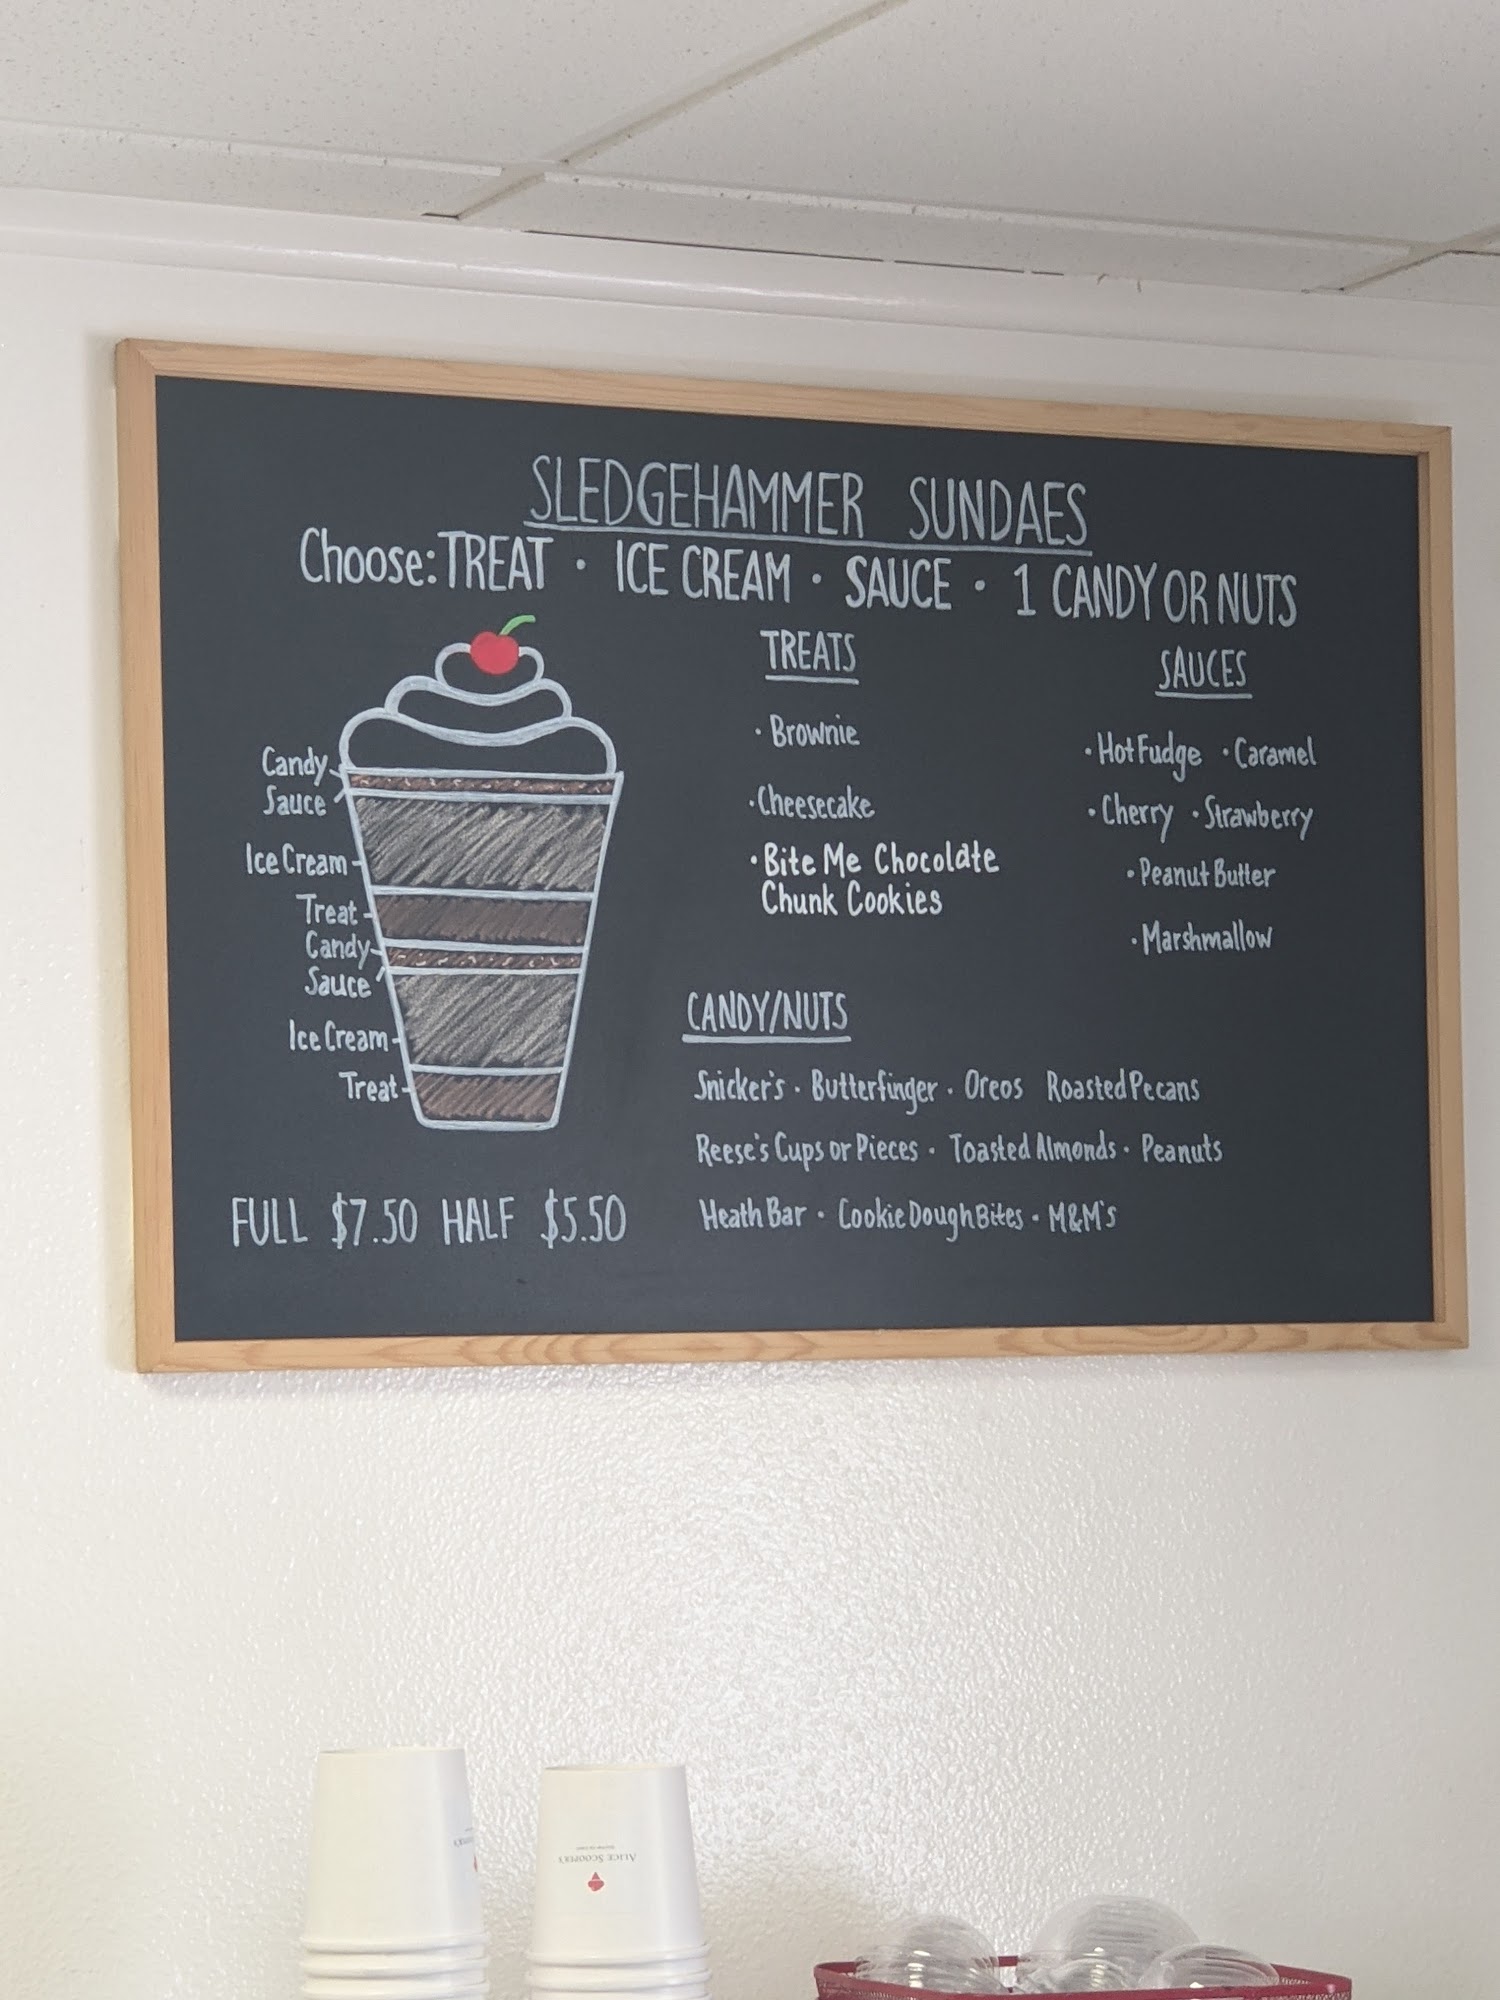 SLEDGEHAMMER SUNDAES
Choose: TREAT · ICE CREAM · SAUCE · 1 CANDY OR NUTS
Candy
Sauce
Ice Cream
Treat
Candy
Sauce
Ice Cream
Treat
FULL $7.50 HALF $5.50
TREATS
· Brownie
· Cheesecake
· Bite Me Chocolate
Chunk Cookies
SAUCES
· Hot Fudge · Caramel
· Cherry · Strawberry
· Peanut Butter
· Marshmallow
CANDY/NUTS
Snicker's · Butterfinger · Oreos Roasted Pecans
Reese's Cups or Pieces · Toasted Almonds · Peanuts
Heath Bar · Cookie Dough Bites · M&M's
ALICE SCOOPER'S